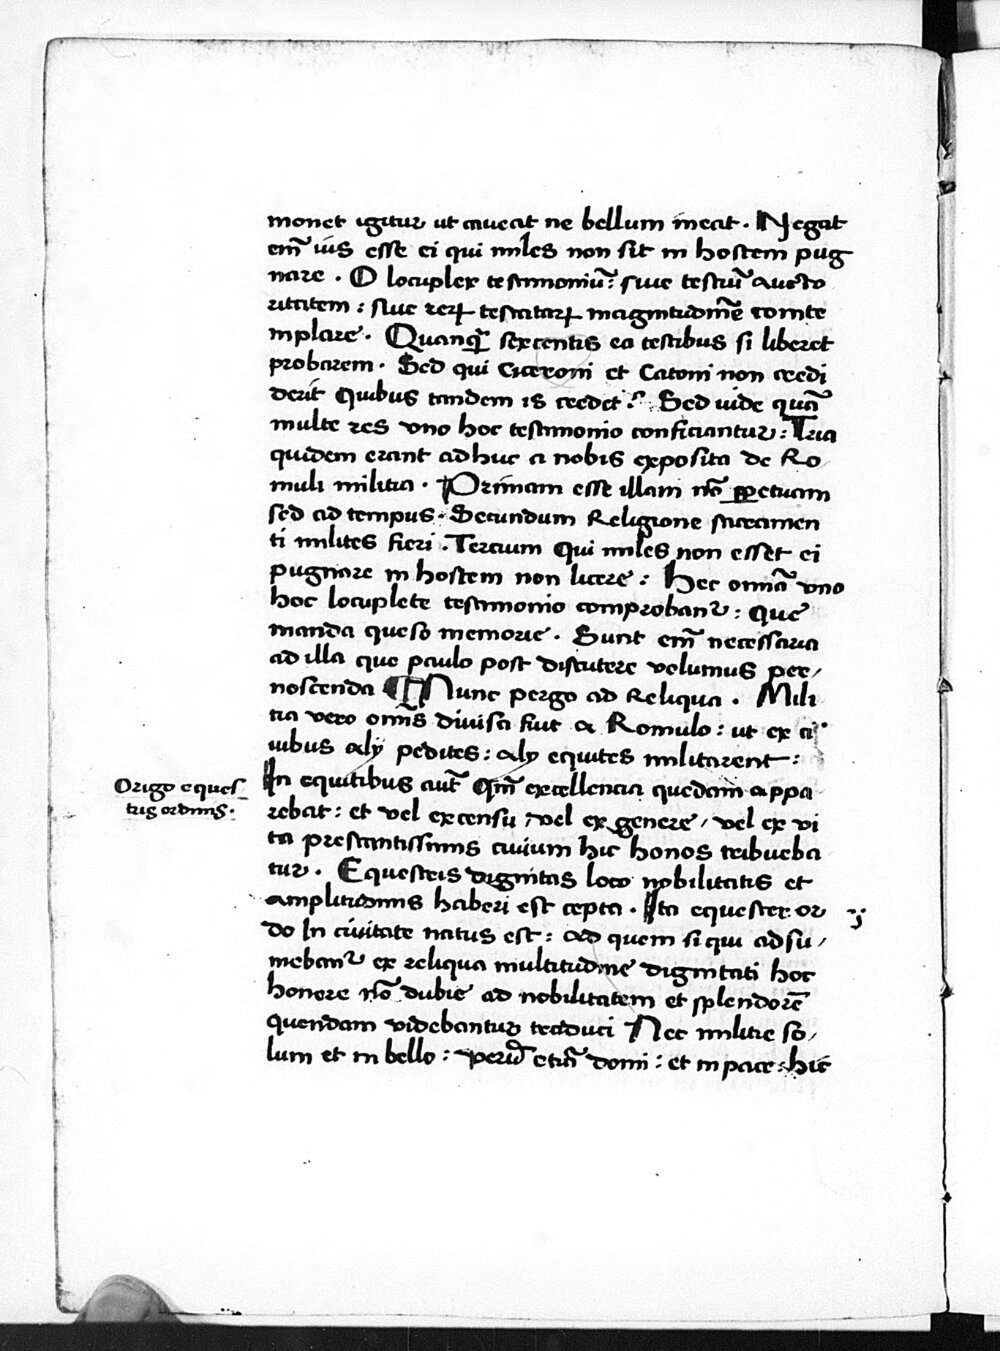 monet igitur ut caueat ne bellum ineat . Negat
em̄ ius esse ei qui miles non sit in hostem pug
nare . O locuplex testimoniū : siue testiū aucto
ritatem : siue rerꝝ testatarꝝ magnitudinē comte
mplare . Quanqꝫ sexcentis ea testibus si liberet
probarem . Sed qui Ciceroni et Catoni non credi
derit Quibus tandem is credet ? Sed uide quā
multe res vno hoc testimonio conficiantur : Tria
quidem erant adhuc a nobis exposita de Ro
muli militia . Primam esse illam nō ꝑpetuam
sed ad tempus . Secundum Religione sacramen
ti milites fieri . Tercium Qui miles non esset ei
pugnare in hostem non licere : Hec omīa vno
hoc locuplete testimonio comprobant᷑ : Que
manda queso memorie . Sunt em̄ necessaria
ad illa que paulo post discutere volumus per/
noscenda ¶ Nunc pergo ad Reliqua . Mili
tia vero omīs diuisa fuit a Romulo : ut ex ci
uibus alij pedites : alij equites militarent :
In equitibus aut̄ Qm̄ excellencia quedam appa
rebat : et vel ex censu / vel ex genere / vel ex vi
ta prestantissimis ciuium hic honos tribueba
tur . Equestris dignitas loco nobilitatis et
amplitudinis haberi est cepta . Ita equester or
do In ciuitate natus est : ad quem si qui adsu/
mebant᷑ ex reliqua multitudine dignitati hoc
honore nō dubie ad nobilitatem et splendorē
quendam videbantur traduci Nec militie so/
lum et in bello : verū etiā domi : et in pace : hic
Origo eques
tris ordinis .